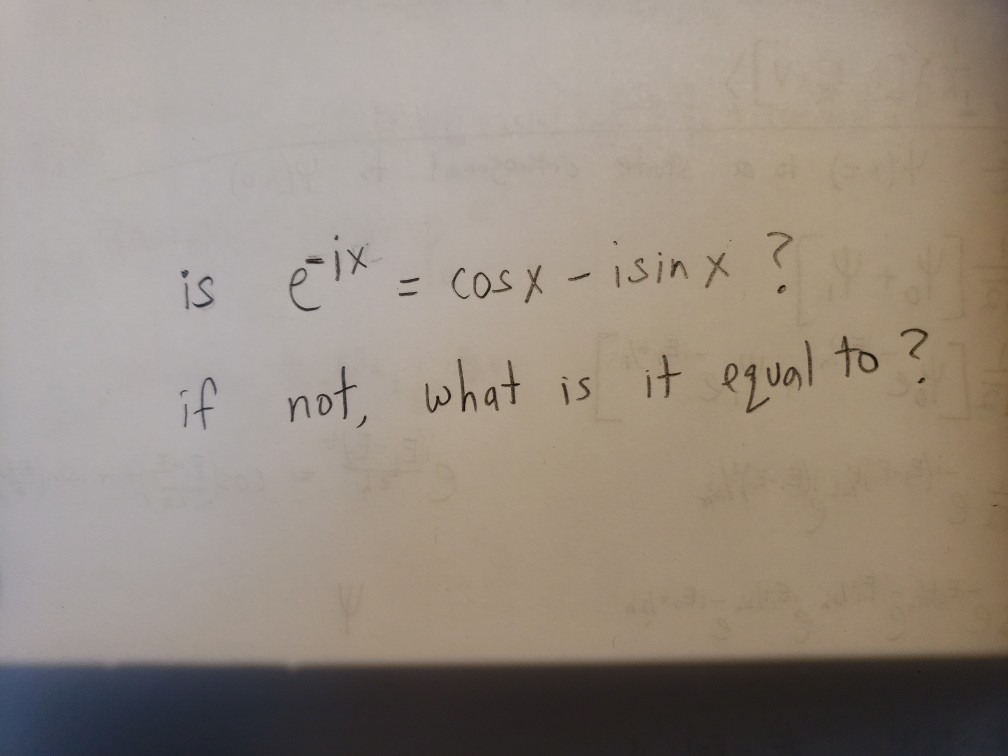 is e^{-ix} = cosx - isin x ?
if not, what is it equal to ?